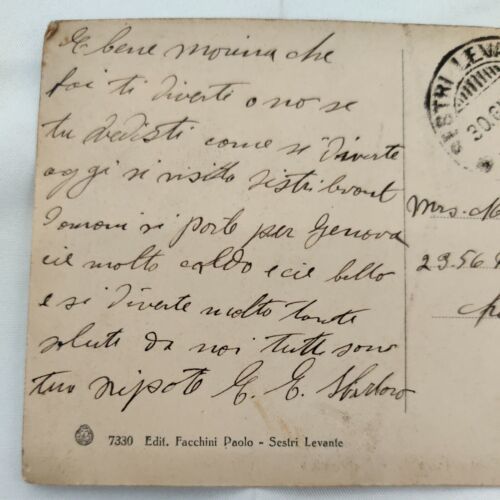 E bene monina che
fai ti diverti o no se
tu vedisti come si diverte
oggi si visitta Sestri Levant
Domani si parte per Genova
cie molto caldo e cie bello
e si diverte molto tante
saluti da noi tutti sono
tuo nipote E. E.
SESTRI LEVA
30.6
Mrs. M
23.56
7330 Edit. Facchini Paolo - Sestri Levante